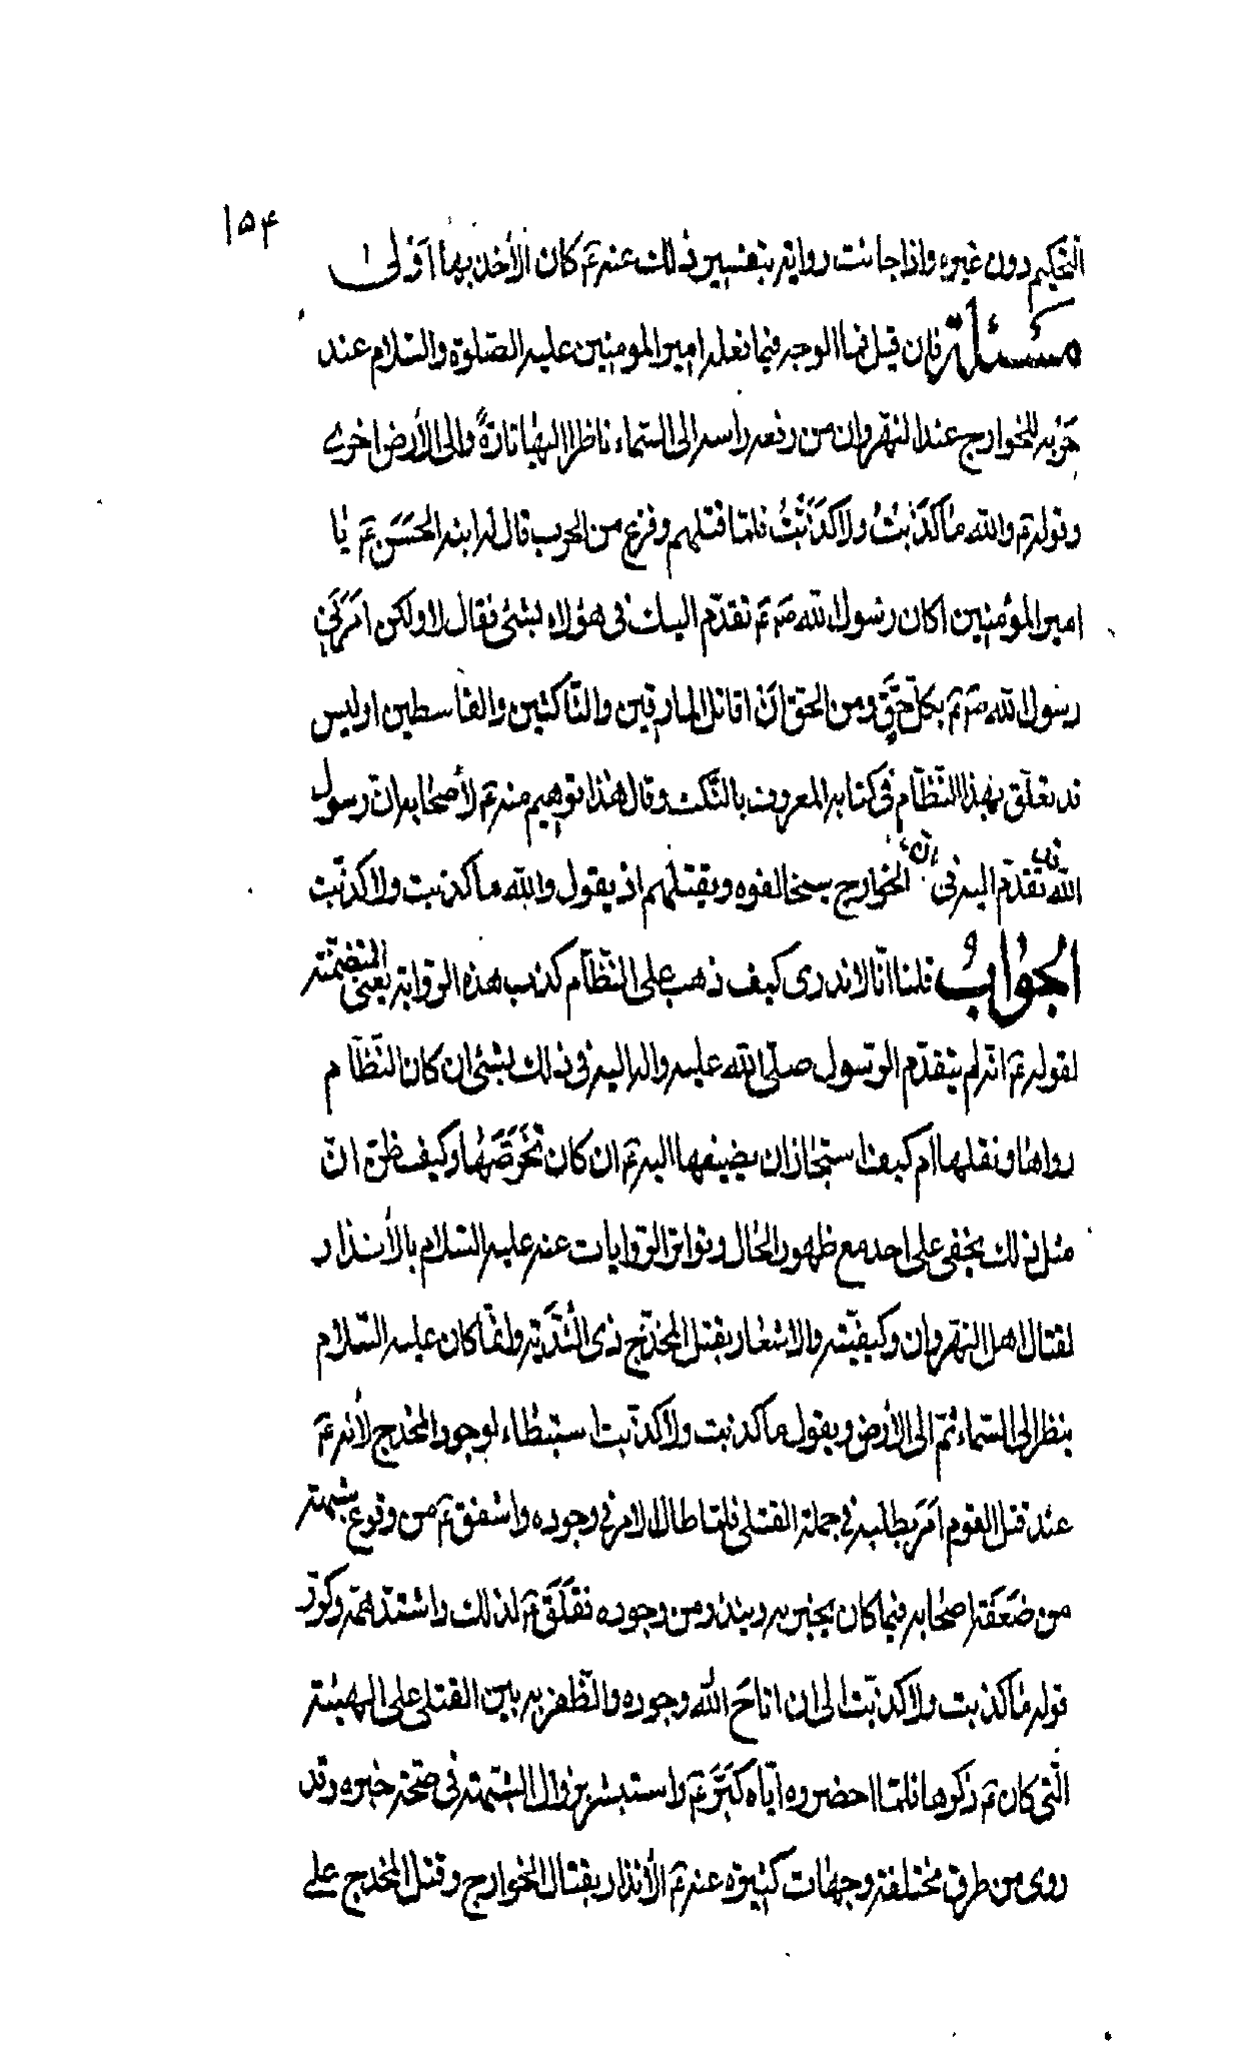 ١٥۴
التحكيم دون غيره واذا جائت رواية بتفسير ذلك عنه عَم كان الأخذ بها اَوْلى
مسئلة فإن قيل فما الوجه فيما فعله امير المومنين عليه الصّلوة والسّلام عند
حَرْبه للخوارج عند النهروان من رفعه راسه الى السّماء ناظرا اليها تارةً والى الأرض اخرى
وقوله عَم والله ما كَذَبتُ ولا كَذَّبتُ فلمّا قتلهم وفرغ من الحرب قال له ابنه الحَسَن عَم يا
امير المؤمنين اكان رسول الله صَم عَم تقدّم اليك فى هؤلاء بشئ فقال لا ولكن اَمَرَنى
رسول الله صَم عَم بكلّ حقّ ومن الحق انْ اقاتل المارقين والنّاكثين والقاسطين اوليس
قد تعلّق بهذا النّظّام فى كتابه المعروف بالنّكت وقال هذا توهيم منه عَم لأصحابه انّ رسول
الله قد تقدّم اليه فى انّ الخوارج سيخالفوه ويقتلهم اذ يقول والله ما كذبت ولا كذّبت
الجوابُ قلنا انّا لا ندرى كيف ذهب على النّظّام كذب هذه الرّواية يعنى المتضمّنة
لقوله عَم انّه لم يتقدّم الرّسول صلّى الله عليه واله اليه فى ذلك بشئ ان كان النّظّام
رواها ونقلها ام كيف استجاز ان يضيفها اليه عَم ان كان تَخَرَّصَها وكيف ظنّ انّ
مثل ذلك يخفى على احد مع ظهور الحال وتواتر الرّوايات عنه عليه السّلام بالأنذار
لقتال اهل النهروان وكيفيّته والاشعار بقتل المخدّج ذى الثّدَيّة وانّما كان عليه السّلام
ينظر الى السّماء ثمّ الى الأرض ويقول ما كذبت ولا كذّبت استبطاء لوجود المخدج لأنه عَم
عند قتل القوم اَمَرَ بطلبه فى جملة القتلى فلمّا طال الامر فى وجوده واشفق عَم من وقوع شبهة
من ضَعَفَة اصحابه فيما كان يخبر به وينذر من وجوده فقَلَقَ عَم لذلك واشتدّ همّه وكرّر
قوله ما كذبت ولا كذّبت الى ان اتاحَ الله وجوده والظّفر به بين القتلى على الهيئة
الّتى كان عَم ذكرها فلمّا احضروه ايّاه كَبَّرَ عَم واستبشر بزوال الشّبهة فى صحّة خبره وقد
روى من طرق مختلفة وجهات كثيرة عنه عَم الأنذار بقتال الخوارج وقتل المخدج على